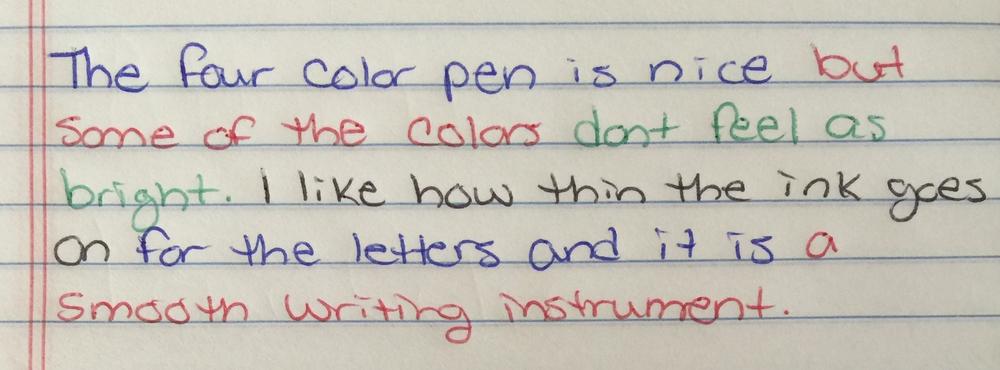 The four color pen is nice but
some of the colors dont feel as
bright. I like how thin the ink goes
on for the letters and it is a
smooth writing instrument.